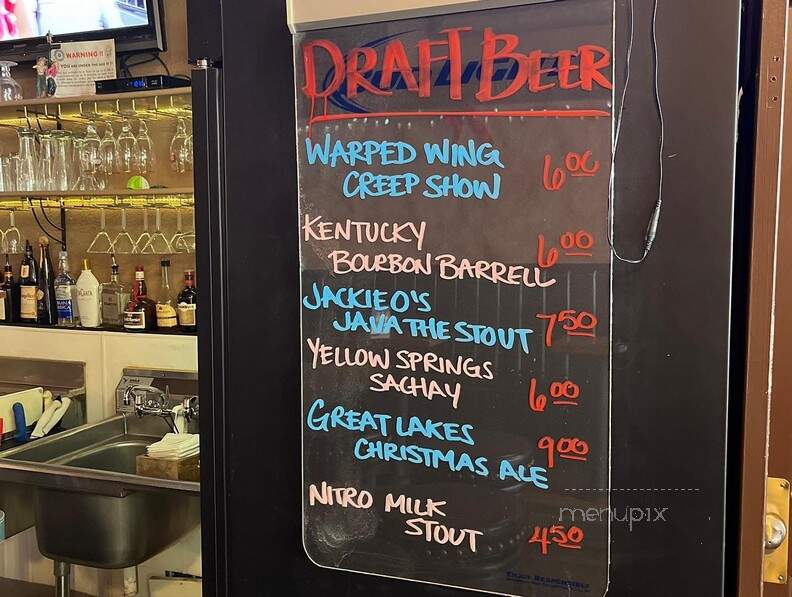 WARNING !!
DRAFT BEER
WARPED WING 6.00
CREEP SHOW
KENTUCKY 6.00
BOURBON BARRELL
JACKIE O'S
JAVA THE STOUT 7.50
YELLOW SPRINGS
SACHAY 6.00
GREAT LAKES 9.00
CHRISTMAS ALE
NITRO MILK
STOUT 4.50
menupix
ENJOY RESPONSIBLY